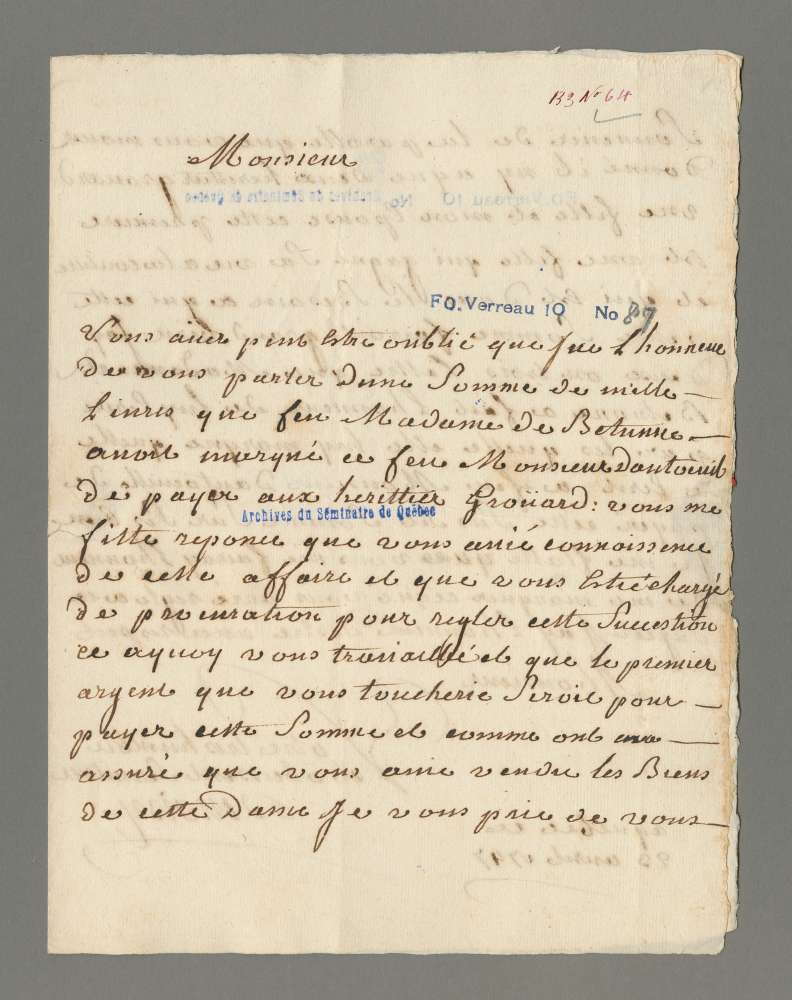 B3 No 64
Monsieur
FO. Verreau 10 No 87
Vous aués peut Estre oublié que jue Lhonneur
de vous parler dune Somme de mille
Liures que feu Madame de Betunne
auoit marqué a feu Monsieur Danteuil
de payer aux herittier Groüard : vous me
Archives du Séminaire de Québec
fitte reponce que vous auié connoissence
de cette affaire et que vous Estié chargé
de procuration pour regler cette Succestion
ce aquoy vous trauaillié et que le premier
argent que vous toucherie Seroit pour
payer cette Somme et comme ont ma
assuré que vous auie vendu les Biens
de cette Dame Je vous prie de vous